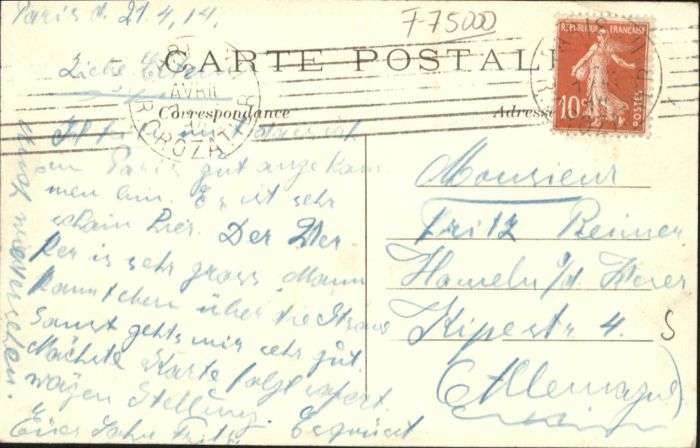 Paris d. 21.4.14.
F-75000
CARTE POSTALE
Correspondance
Adresse
REPUBLIQUE FRANÇAISE
10
POSTES
AVRIL
R. CROZATIER
Liebe
in Paris gut angekom
men bin. Es ist sehr
schain hier. Der Ver
ker is sehr gross. Mann
kannichen über die Strase
Sonst gehts mir sehr gut.
Nächste Karte folgt
wägen Stellung.
Euer Sohn Fritz. Begrüsst
Monsieur
Fritz Reimer
Hameln a/d. Weser
Kipestr 4.
S
(Allemagne)